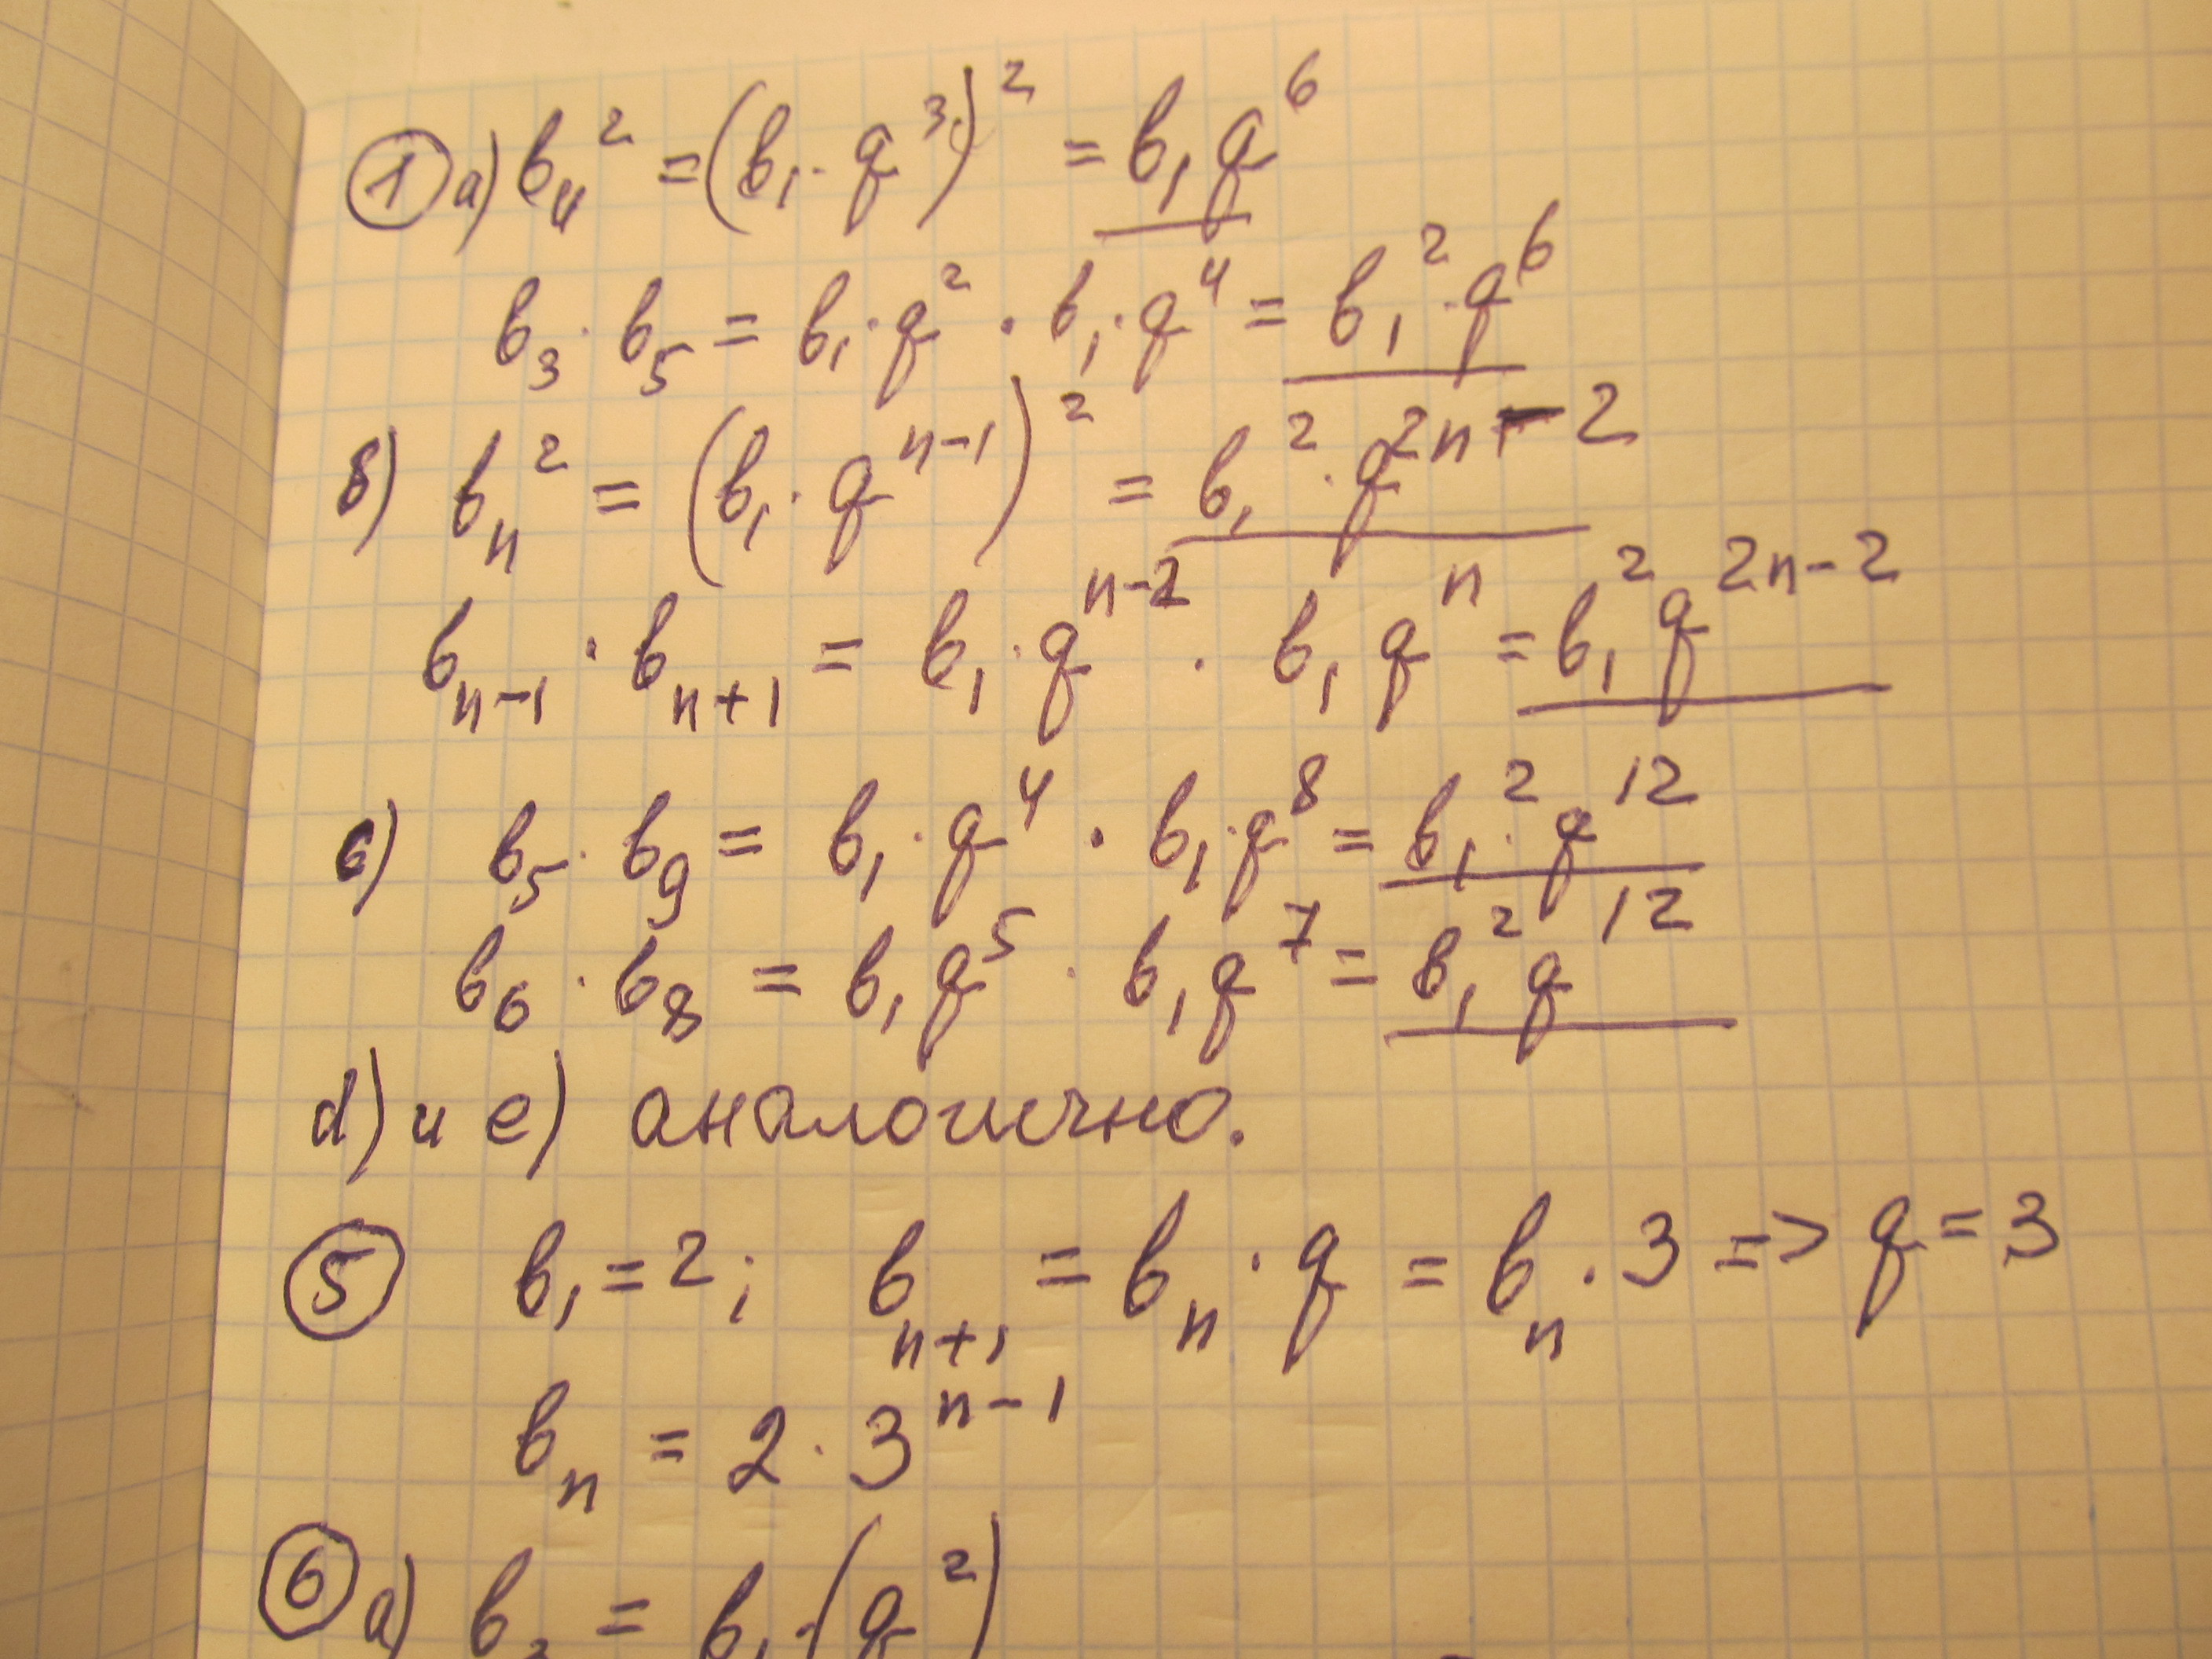 ① a) b₄² = (b₁·q³)² = b₁q⁶
b₃·b₅ = b₁·q²·b₁·q⁴ = b₁²·q⁶
b) bₙ² = (b₁·qⁿ⁻¹)² = b₁²·q²ⁿ⁻²
bₙ₋₁·bₙ₊₁ = b₁·qⁿ⁻²·b₁qⁿ = b₁²q²ⁿ⁻²
c) b₅·b₉ = b₁·q⁴·b₁·q⁸ = b₁²·q¹²
b₆·b₈ = b₁q⁵·b₁q⁷ = b₁²q¹²
d) и e) аналогично.
⑤ b₁ = 2; bₙ₊₁ = bₙ·q = bₙ·3 => q = 3
bₙ = 2·3ⁿ⁻¹
⑥ a) b₃ = b₁·(q²)